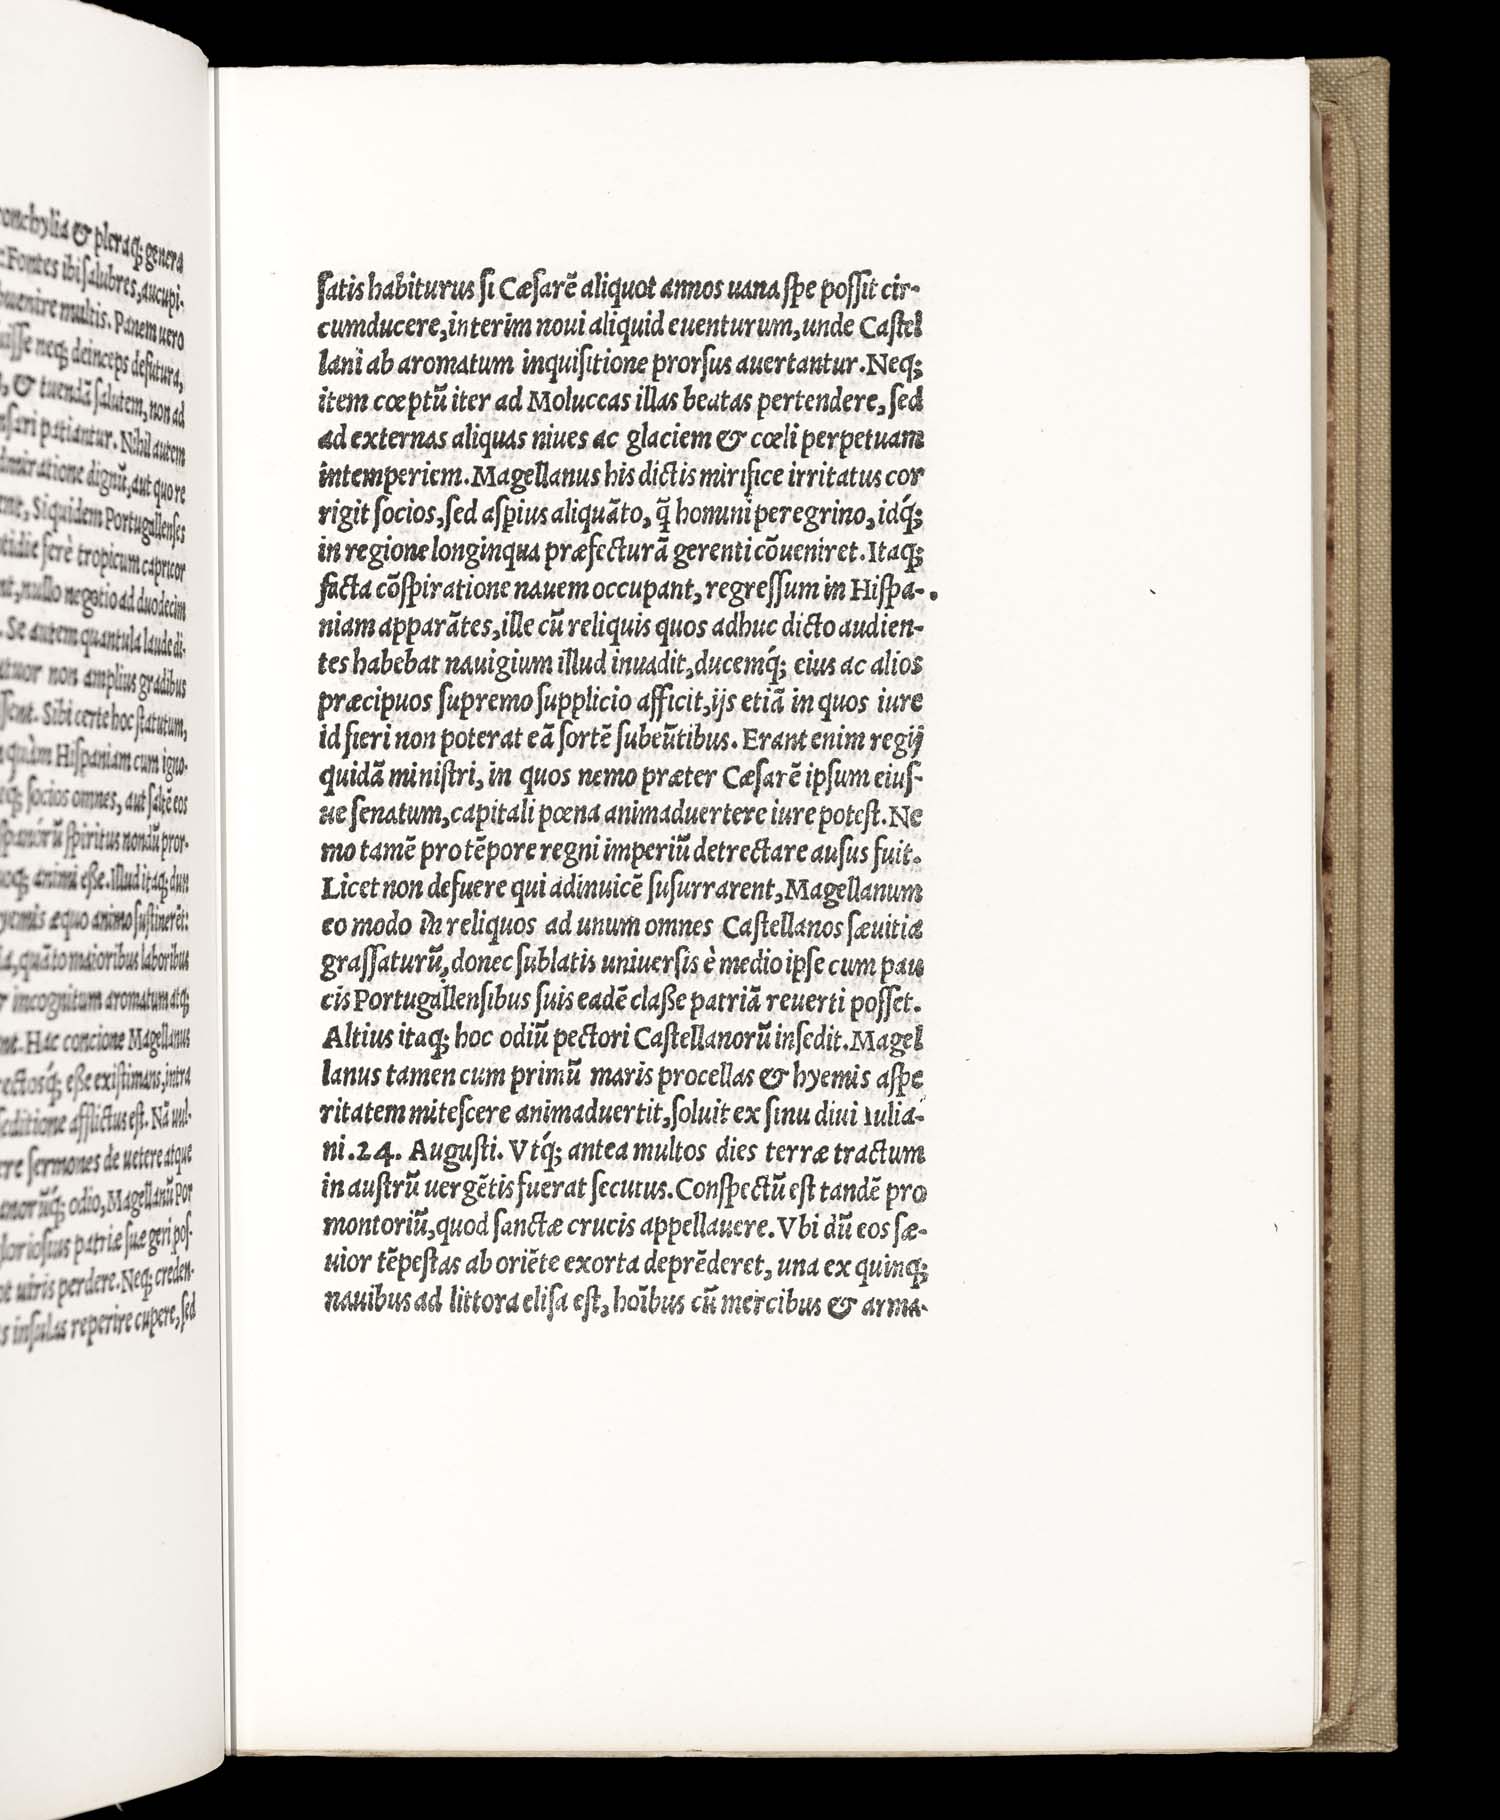 onchylia & pleraq; genera
Fontes ibi salubres, aucupi-
uenire multis. Panem uero
uisse neq; deinceps defutura,
& tuendã salutem, non ad
nsari patiantur. Nihil autem
dmiratione dignũ, aut quo re
Siquidem Portugallenses
otidie ferè tropicum capricor
nt, nullo negotio ad duodecim
Se autem quantula laude di-
atuor non amplius gradibus
ssent. Sibi certe hoc statutum,
quàm Hispaniam cum igno-
q; socios omnes, aut saltẽ eos
spanórũ spiritus nondũ pror-
oq; animi eße. Illud itaq; dun
yemis æquo animo sustinerẽt:
ia, quãto maioribus laboribus
r incognitum aromatum atq;
nt. Hac concione Magellanus
rectosq́; eße existimans, intra
seditione afflictus est. Nã uul-
re sermones de uetere atque
anorũq́; odio, Magellanũ por
loriosius patriæ suæ geri pos-
ot uiris perdere. Neq; creden-
s insulas reperire cupere, sed
satis habiturus si Cæsarẽ aliquot annos uana spe possit cir-
cumducere, interim noui aliquid euenturum, unde Castel
lani ab aromatum inquisitione prorsus auertantur. Neq;
item cœptũ iter ad Moluccas illas beatas pertendere, sed
ad externas aliquas niues ac glaciem & cœli perpetuam
intemperiem. Magellanus his dictis mirifice irritatus cor
rigit socios, sed aspius aliquãto, q̃ homini peregrino, idq́;
in regione longinqua præfecturã gerenti cõueniret. Itaq;
facta cõspiratione nauem occupant, regressum in Hispa-
niam apparãtes, ille cũ reliquis quos adhuc dicto audien-
tes habebat nauigium illud inuadit, ducemq́; eius ac alios
præcipuos supremo supplicio afficit, ijs etiã in quos iure
id fieri non poterat eã sortẽ subeũtibus. Erant enim regij
quidã ministri, in quos nemo præter Cæsarẽ ipsum eius-
ue senatum, capitali pœna animaduertere iure potest. Ne
mo tamẽ pro tẽpore regni imperiũ detrectare ausus fuit.
Licet non defuere qui adinuicẽ susurrarent, Magellanum
eo modo in reliquos ad unum omnes Castellanos sæuitia
grassaturũ, donec sublatis uniuersis è medio ipse cum pau
cis Portugallensibus suis eadẽ claße patriã reuerti posset.
Altius itaq; hoc odiũ pectori Castellanorũ insedit. Magel
lanus tamen cum primũ maris procellas & hyemis aspe
ritatem mitescere animaduertit, soluit ex sinu diui Iulia-
ni .24. Augusti. Vtq́; antea multos dies terræ tractum
in austrũ uergẽtis fuerat secutus. Conspectũ est tandẽ pro
montoriũ, quod sanctæ crucis appellauere. Vbi dũ eos sæ-
uior tẽpestas ab oriẽte exorta deprẽderet, una ex quinq;
nauibus ad littora elisa est, hoĩbus cũ mercibus & arma-